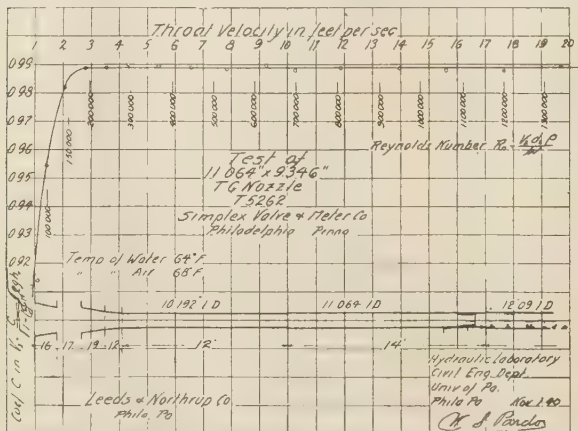 Throat Velocity in feet per sec
1 2 3 4 5 6 7 8 9 10 11 12 13 14 15 16 17 18 19 20
0.99
0.98
0.97
0.96
0.95
0.94
0.93
0.92
100000
150000
200000
300000
400000
500000
600000
700000
800000
900000
1000000
1100000
1200000
1300000
Reynolds Number
Test of
11 064" x 9.346"
TG Nozzle
T5262
Simplex Valve & Meter Co
Philadelphia Penna
Temp of Water 64°F
" " Air 68°F
10.192" I D
11.064 I D
12.09 I D
16 17 19 12 12' 14'
Leeds & Northrup Co
Phila. Pa
Hydraulic Laboratory
Civil Eng. Dept.
Univ of Pa.
Phila Pa Nov 1.40
W S Pardoe